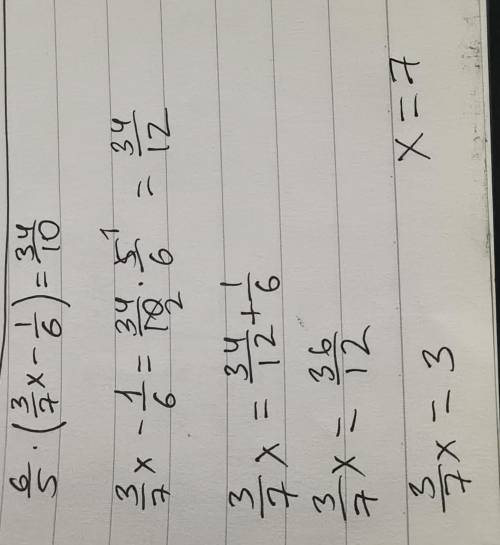 6/5 · (3/7 x - 1/6) = 34/10
3/7 x - 1/6 = 34/10 2 · 5 1/6 = 34/12
3/7 x = 34/12 + 1/6
3/7 x = 36/12
3/7 x = 3 x = 7